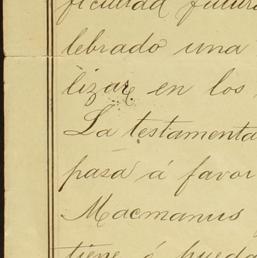 ficultad futura
lebrado una
lizar en los
La testamenta
pasa á favor
Macmanus
tiene ó pueda